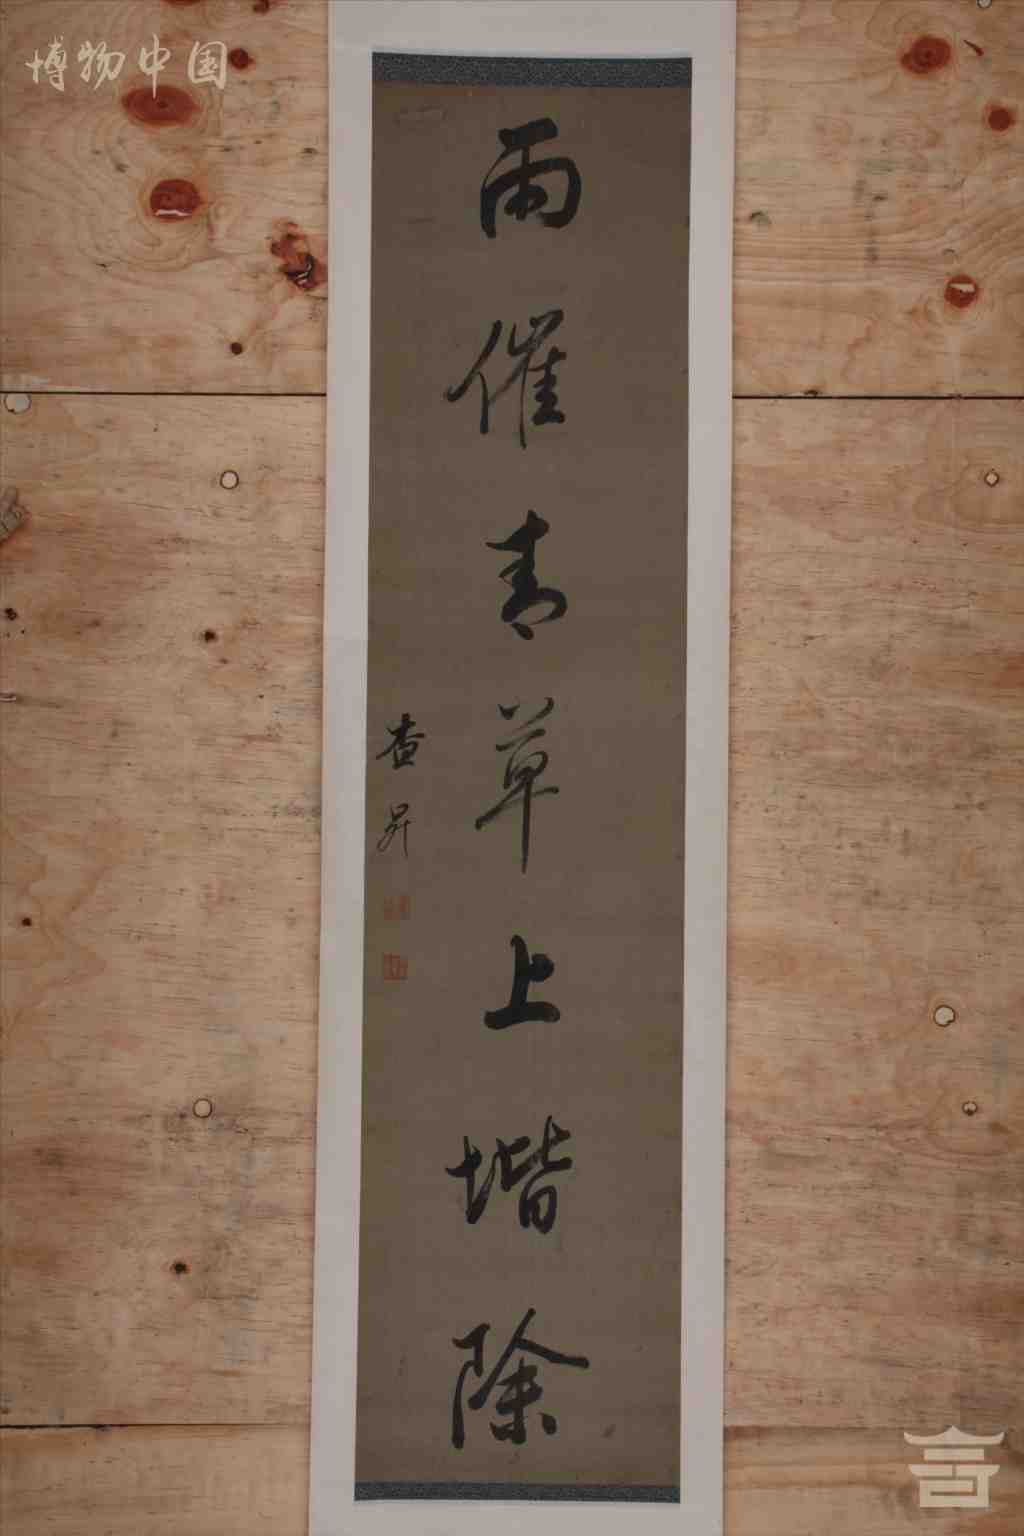 博物中国
雨催青草上堦除
查昇